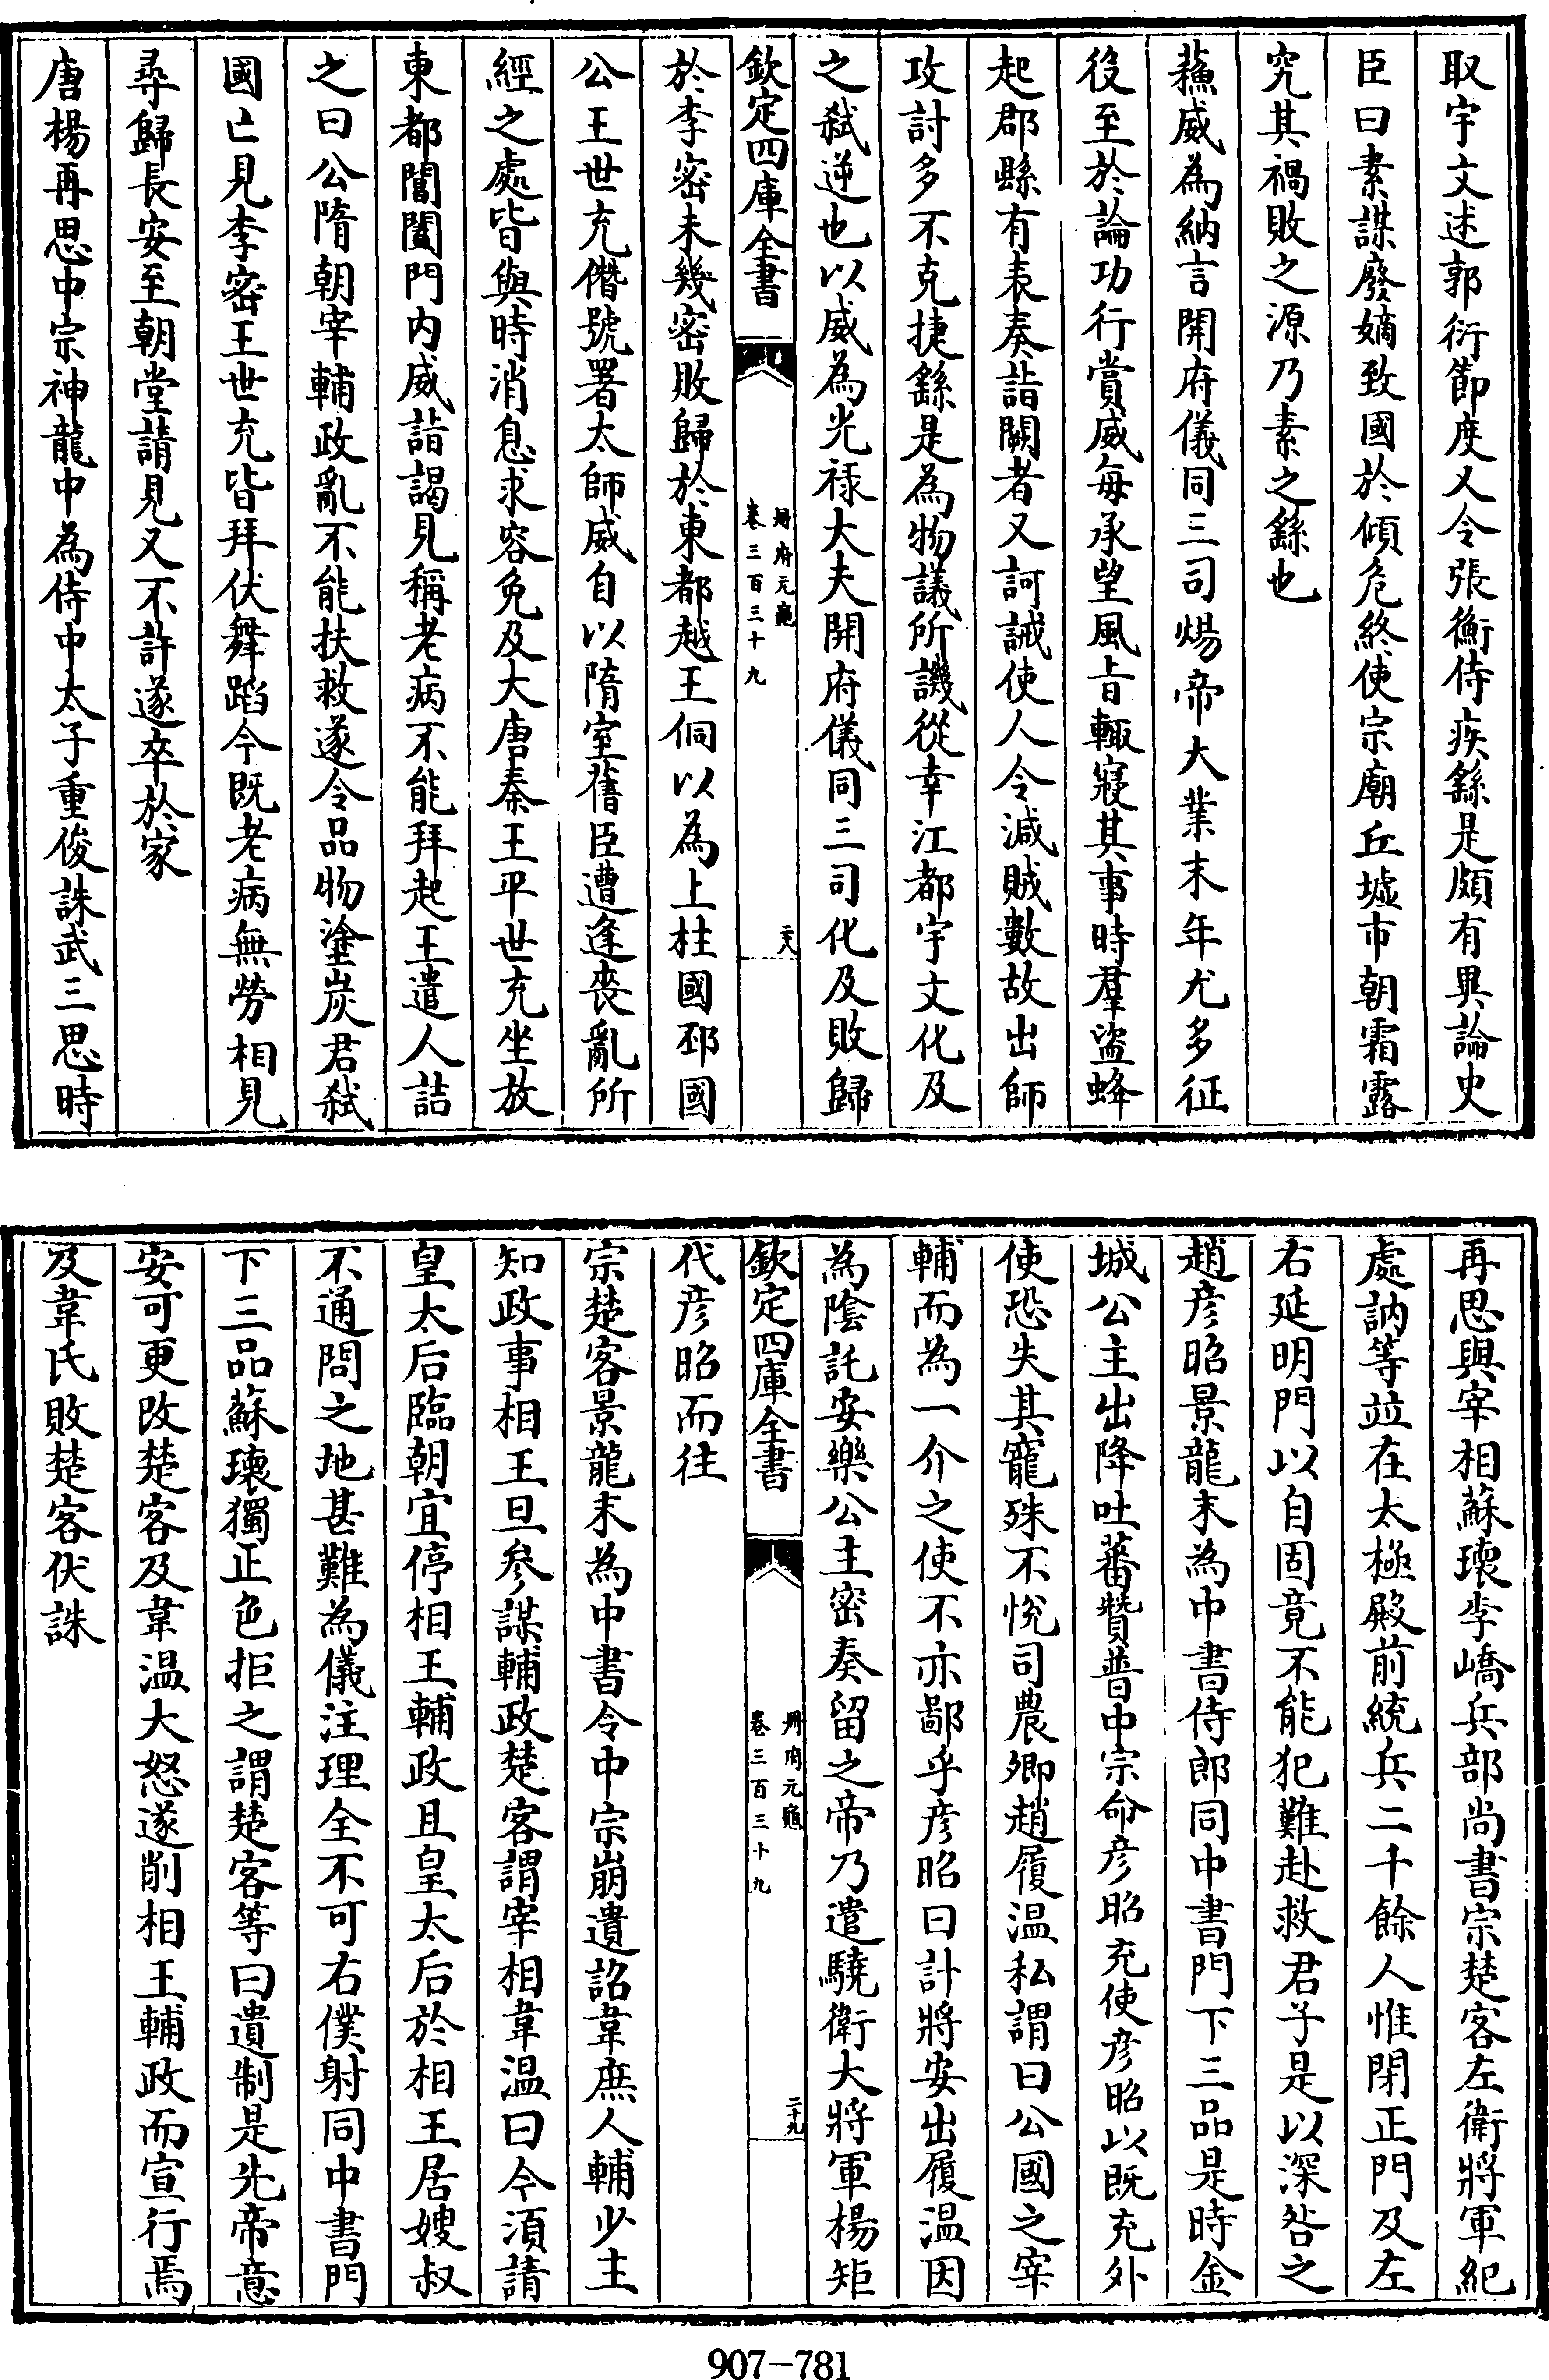 取宇文述郭衍節度又令張衡侍疾繇是頗有異論史
臣曰素謀廢嫡致國於傾危終使宗廟丘墟市朝霜露
究其禍敗之源乃素之繇也
蘇威為納言開府儀同三司煬帝大業末年尤多征
役至於論功行賞威每承望風旨輒寢其事時羣盜蜂
起郡縣有表奏詣闕者又訶誡使人令減賊數故出師
攻討多不克捷繇是為物議所譏從幸江都宇文化及
之弑逆也以威為光祿大夫開府儀同三司化及敗歸
欽定四庫全書
冊府元龜
卷三百三十九
二十八
於李密未幾密敗歸於東都越王侗以為上柱國邳國
公王世充僭號署太師威自以隋室舊臣遭逢喪亂所
經之處皆與時消息求容免及大唐秦王平世充坐放
東都閶闔門内威詣謁見稱老病不能拜起王遣人詰
之曰公隋朝宰輔政亂不能扶救遂令品物塗炭君弑
國亡見李密王世充皆拜伏舞蹈今既老病無勞相見
尋歸長安至朝堂請見又不許遂卒於家
唐楊再思中宗神龍中為侍中太子重俊誅武三思時
再思與宰相蘇瓌李嶠兵部尚書宗楚客左衛將軍紀
處訥等並在太極殿前統兵二十餘人惟閉正門及左
右延明門以自固竟不能犯難赴救君子是以深咎之
趙彦昭景龍末為中書侍郎同中書門下三品是時金
城公主出降吐蕃贊普中宗命彦昭充使彦昭以既充外
使恐失其寵殊不悅司農卿趙履温私謂曰公國之宰
輔而為一介之使不亦鄙乎彦昭曰計將安出履温因
為陰託安樂公主密奏留之帝乃遣驍衛大將軍楊矩
欽定四庫全書
冊府元龜
卷三百三十九
二十九
代彦昭而往
宗楚客景龍末為中書令中宗崩遺詔韋庶人輔少主
知政事相王旦参謀輔政楚客謂宰相韋温曰今須請
皇太后臨朝宜停相王輔政且皇太后於相王居嫂叔
不通問之地甚難為儀注理全不可右僕射同中書門
下三品蘇瓌獨正色拒之謂楚客等曰遺制是先帝意
安可更改楚客及韋温大怒遂削相王輔政而宣行焉
及韋氏敗楚客伏誅
907-781